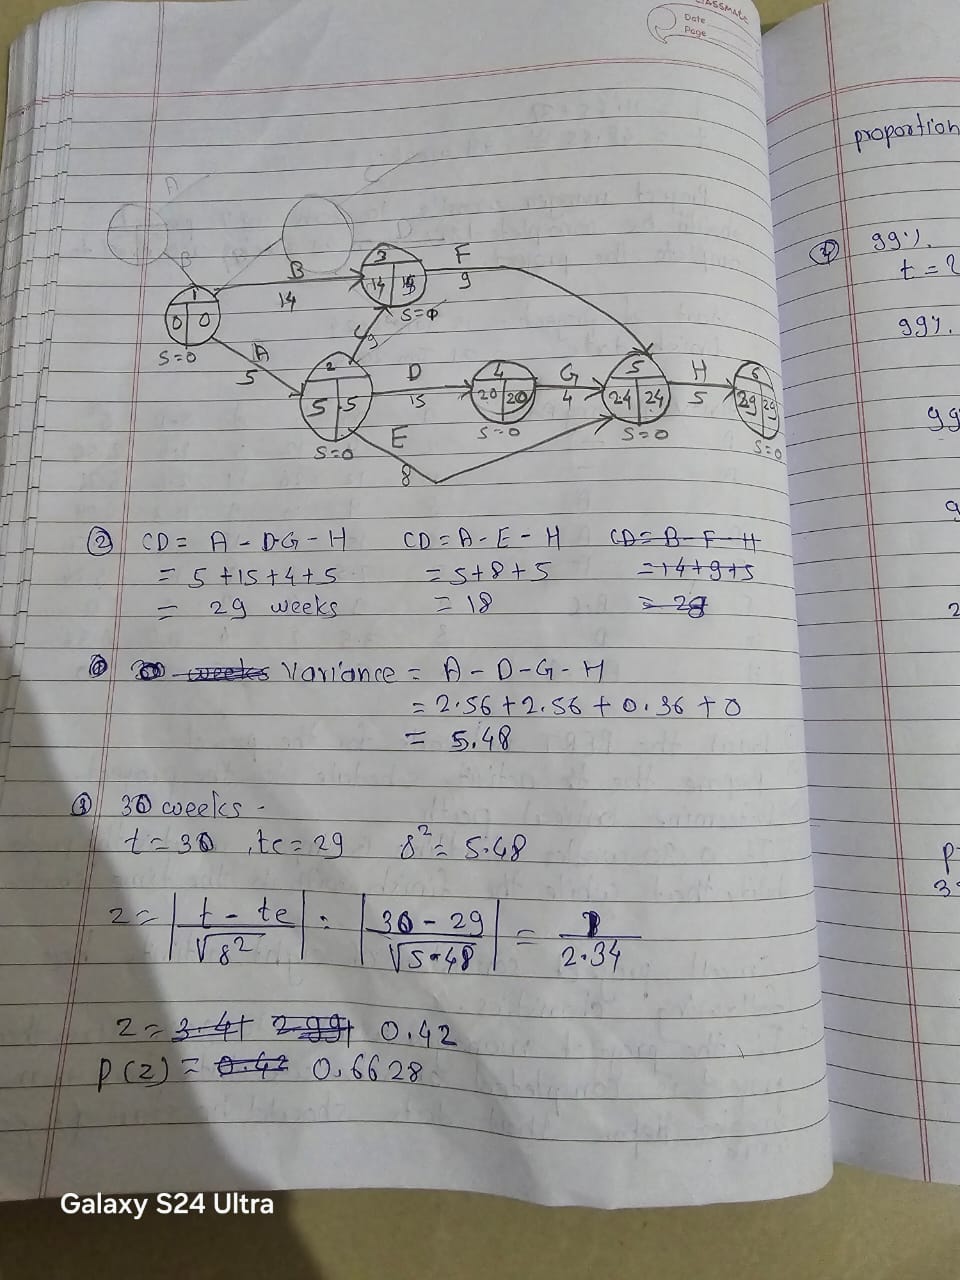 classmate
Date
Page
A
B
C
D
1
0 0
S=0
B
14
3
14
S=0
F
9
C
9
A
5
2
5 5
S=0
D
15
4
20 20
S=0
G
4
5
24 24
S=0
H
5
6
29 29
S=0
E
8
② CD = A - DG - H
= 5 + 15 + 4 + 5
= 29 weeks
CD = A - E - H
= 5 + 8 + 5
= 18
CD = B - F - H
= 14 + 9 + 5
= 28
weeks Variance = A - D - G - H
= 2.56 + 2.56 + 0.36 + 0
= 5.48
③ 30 weeks -
t = 30 , te = 29 8² = 5.48
z = | t - te / √8² | = | 30 - 29 / √5.48 | = 1 / 2.34
z = 3.41 2.991 0.42
P(z) = 0.42 0.6628
proportion
④ 99%.
t = 2
99%.
99
9
2
P
3
Galaxy S24 Ultra